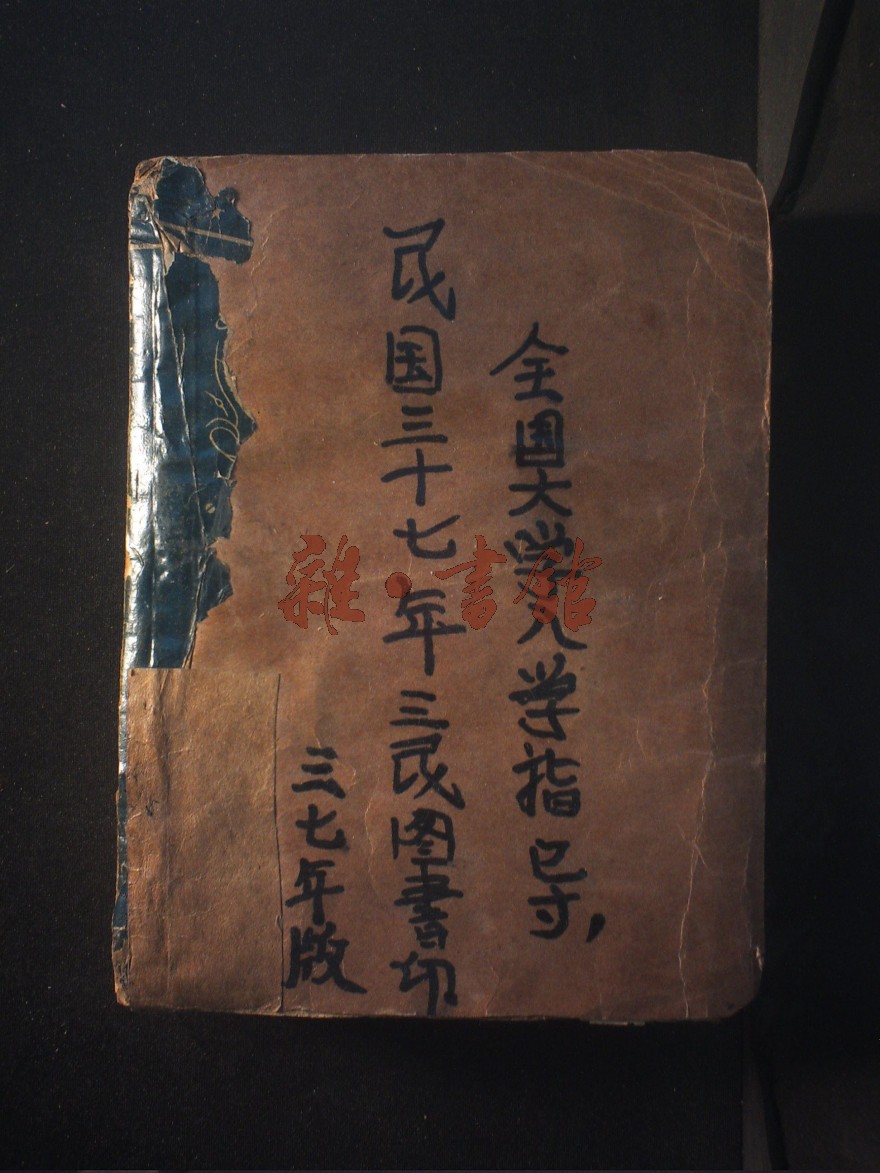 全国大学入学指导,
民国三十七年三民图書印
三七年版
雜·書館